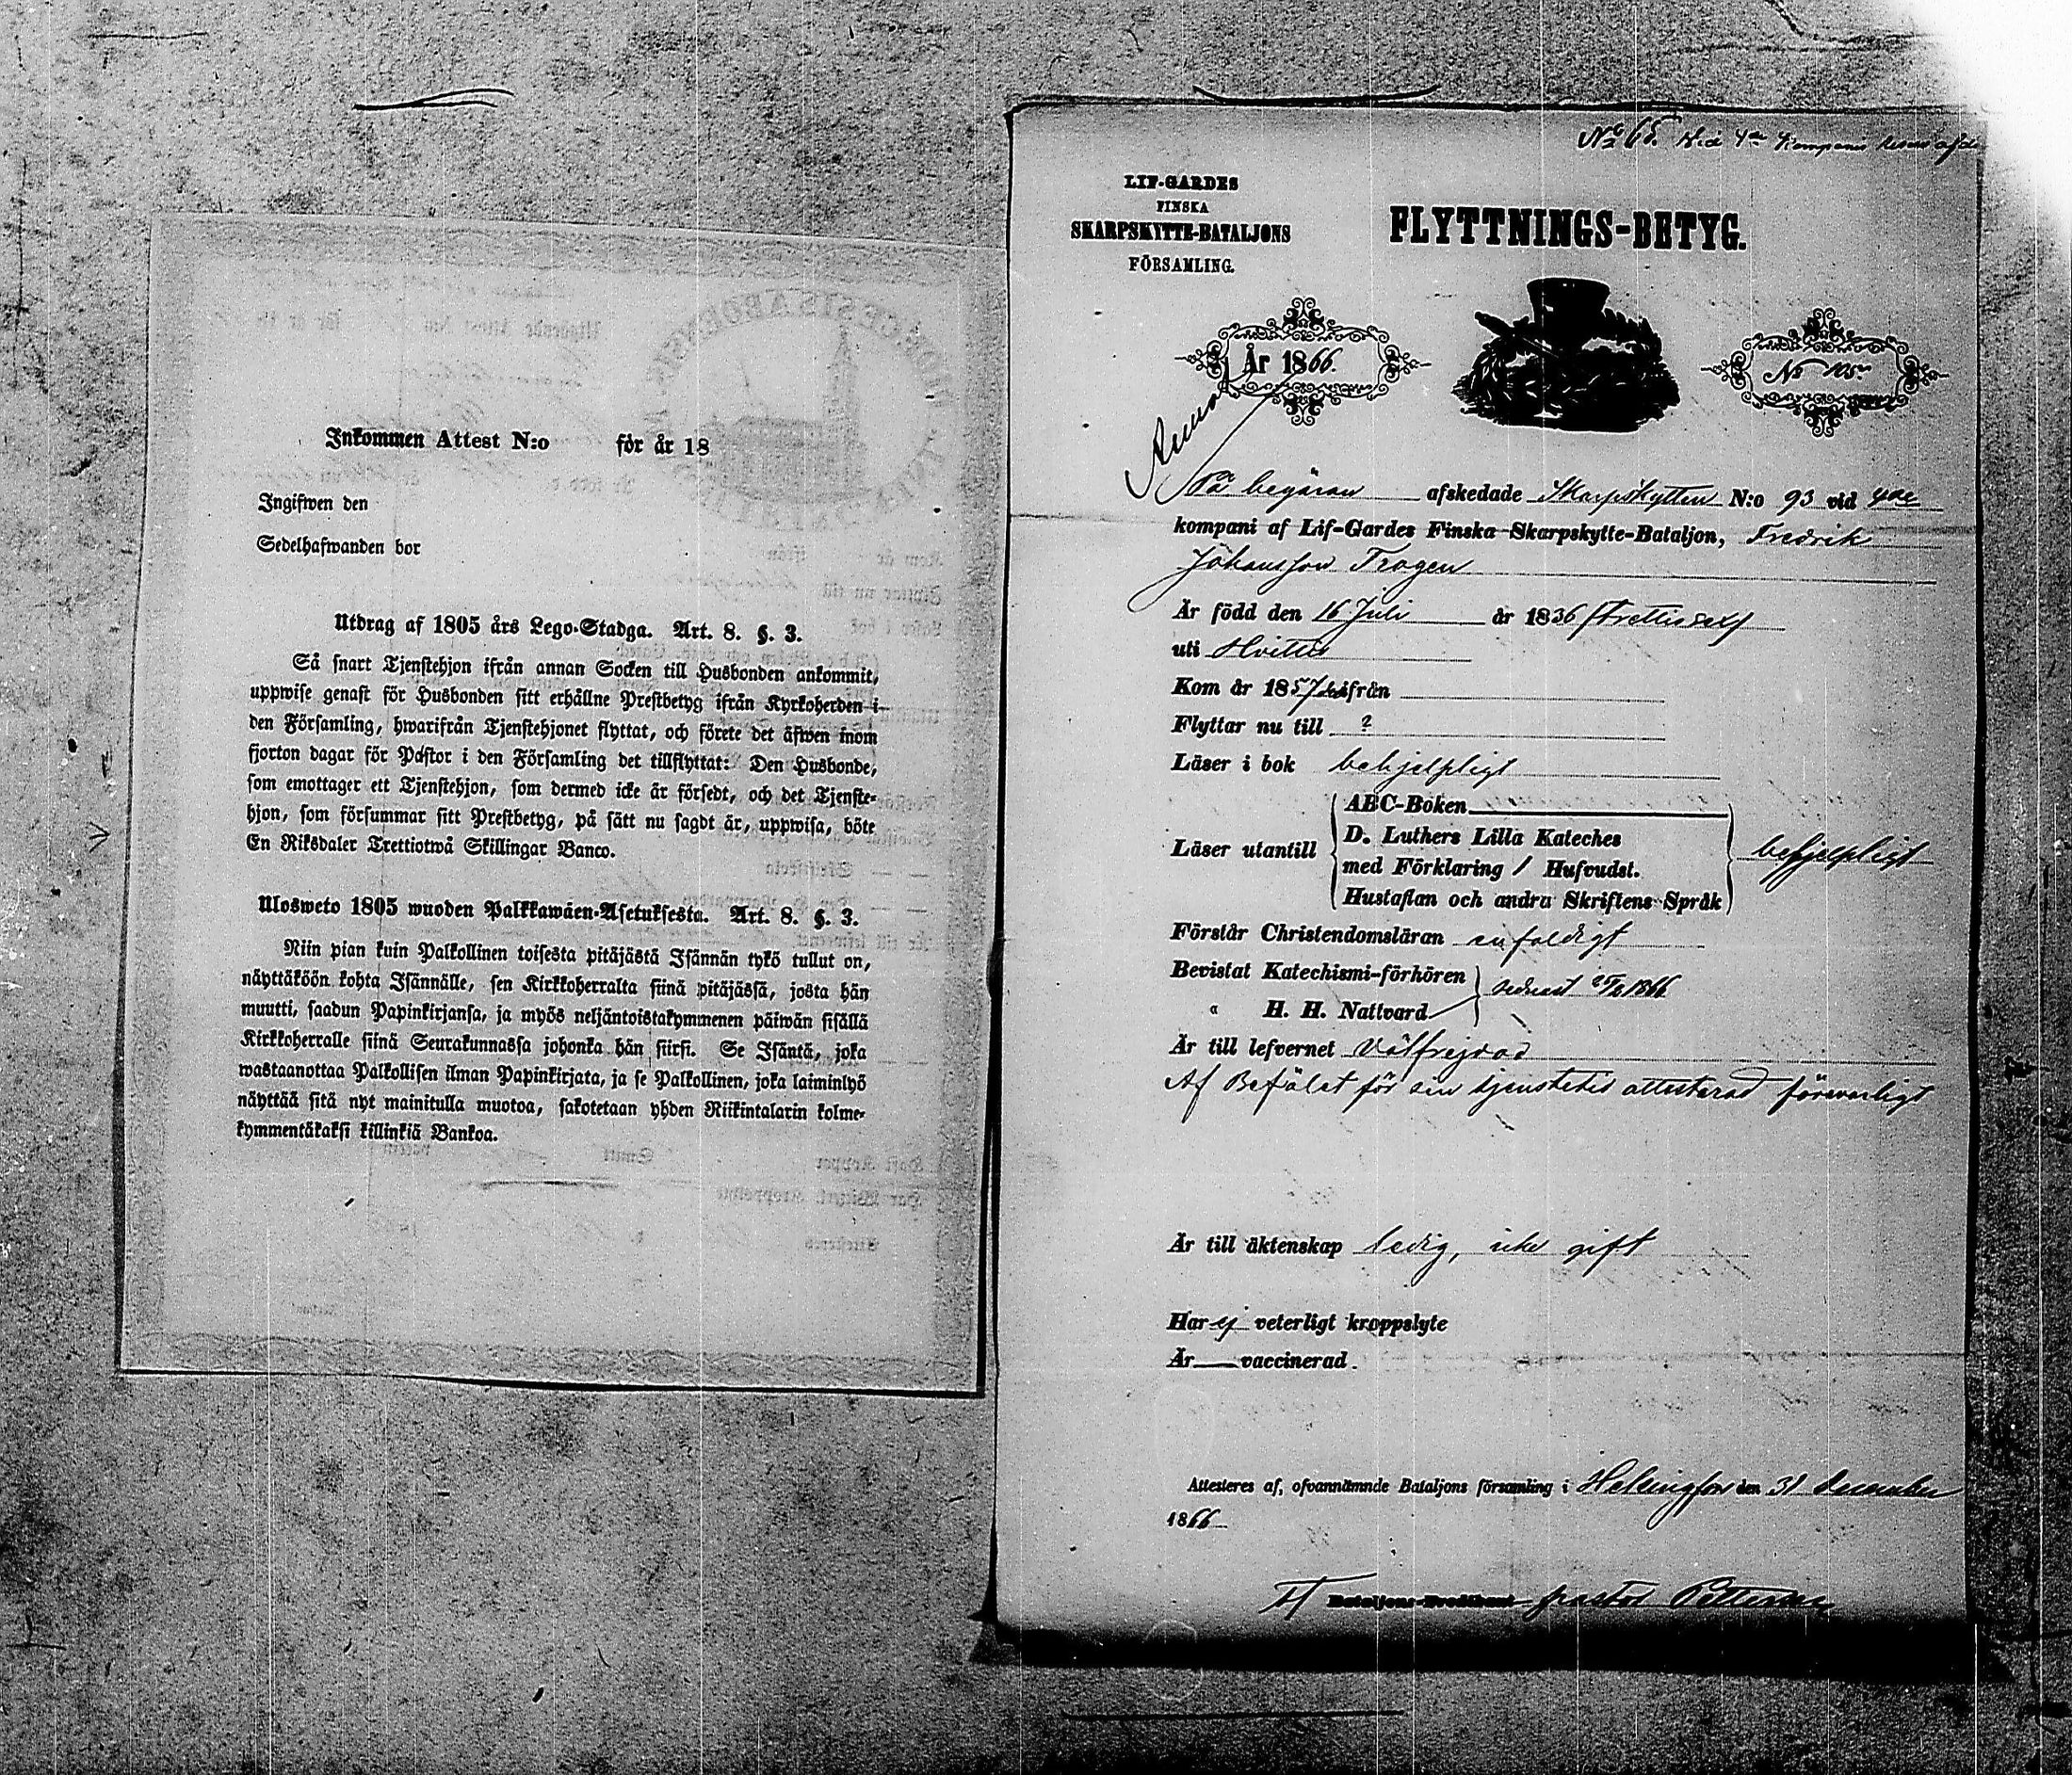 Inkommen Attest N:o för år 18
Ingifwen den
Sedelhafwanden bor
Utdrag af 1805 års Lego-Stadga. Art. 8. §. 3.
Så snart Tjenstehjon ifrån annan Socken till Husbonden ankommit,
uppwise genast för Husbonden sitt erhållne Prestbetyg ifrån Kyrkoherden i
den Församling, hwarifrån Tjenstehjonet flyttat, och förete det äfwen inom
fjorton dagar för Pastor i den Församling det tillflyttat: Den Husbonde,
som emottager ett Tjenstehjon, som dermed icke är försedt, och det Tjenste-
hjon, som försummar sitt Prestbetyg, på sätt nu sagdt är, uppwisa, böte
En Riksdaler Trettiotwå Skillingar Banco.
Ulosweto 1805 wuoden Palkkawäen-Asetuksesta. Art. 8. §. 3.
Niin pian kuin Palkollinen toisesta pitäjästä Isännän tykö tullut on,
näyttäköön kohta Isännälle, sen Kirkkoherralta siinä pitäjässä, josta hän
muutti, saadun Papinkirjansa, ja myös neljäntoistakymmenen päiwän sisällä
Kirkkoherralle siinä Seurakunnassa johonka hän siirsi. Se Isäntä, joka
wastaanottaa Palkollisen ilman Papinkirjata, ja se Palkollinen, joka laiminlyö
näyttää sitä nyt mainitulla muotoa, sakotetaan yhden Riikintalarin kolme-
kymmentäkaksi killinkiä Bankoa.
No 65. Vid 4de Kompanis
LIF-GARDES
FINSKA
SKARPSKYTTE-BATALJONS
FÖRSAMLING.
FLYTTNINGS-BETYG.
År 1866.
No 105
På begäran afskedade Skarpskytten N:o 93 vid 4de
kompani af Lif-Gardes Finska Skarpskytte-Bataljon, Fredrik
Johansson Trogen
Är född den 16 Juli år 1836 (trettiosex)
uti Hvittis
Kom år 1857 ifrån
Flyttar nu till ?
Läser i bok behjelpligt
Läser utantill
ABC-Boken
D. Luthers Lilla Kateches
med Förklaring / Hufvudst.
Hustaflan och andra Skriftens Språk
behjelpligt
Förstår Christendomsläran enfaldigt
Bevistat Katechismi-förhören
" H. H. Nattvard
senast 1866
Är till lefvernet Välfrejdad
Af Befälet för sin tjenstetid attesterad försvarligt
Är till äktenskap ledig, icke gift
Har ej veterligt kroppslyte
Är vaccinerad.
Attesteres af, ofvannämnde Bataljons församling i Helsingfors den 31 December
1866
Bataljons-Predikant pastor